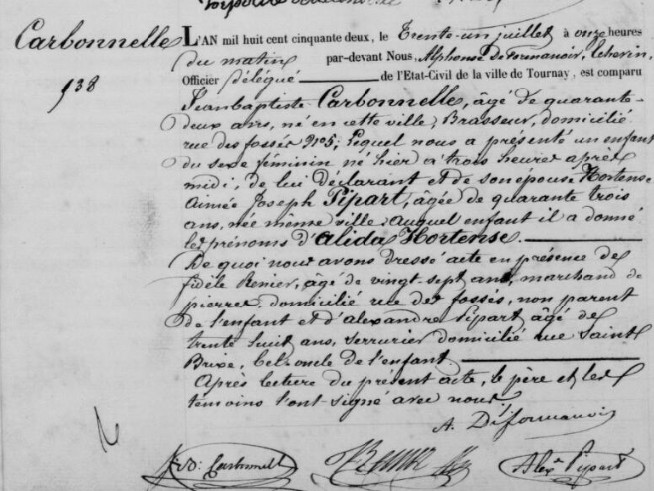 Carbonnelle
138
L'AN mil huit cent cinquante deux, le Trente-un juillet à onze heures
du matin par-devant Nous, Alphonse De Formanoir, Echevin,
Officier délégué de l'Etat-Civil de la ville de Tournay, est comparu
Jean baptiste Carbonnelle, âgé de quarante-
deux ans, né en cette ville, Brasseur, domicilié
rue des fossés N°5; lequel nous a présenté un enfant
du sexe féminin né hier à trois heures après
midi, de lui déclarant et de son épouse Hortense
Aimée Joseph Pipart, âgée de quarante trois
ans, née même ville, Auquel enfant il a donné
les prénoms d'Alida Hortense.
De quoi nous avons dressé acte en présence de
fidèle Renier, âgé de vingt-sept ans, marchand de
pierres, domicilié rue des fossés, non parent
de l'enfant et d'alexandre Pipart, âgé de
trente huit ans, serrurier domicilié rue Saint
Brixe, bel oncle de l'enfant
Après lecture du présent acte, le père et les
temoins l'ont signé avec nous.
A. De formanoir
Carbonnelle
Renier
Alex. Pipart